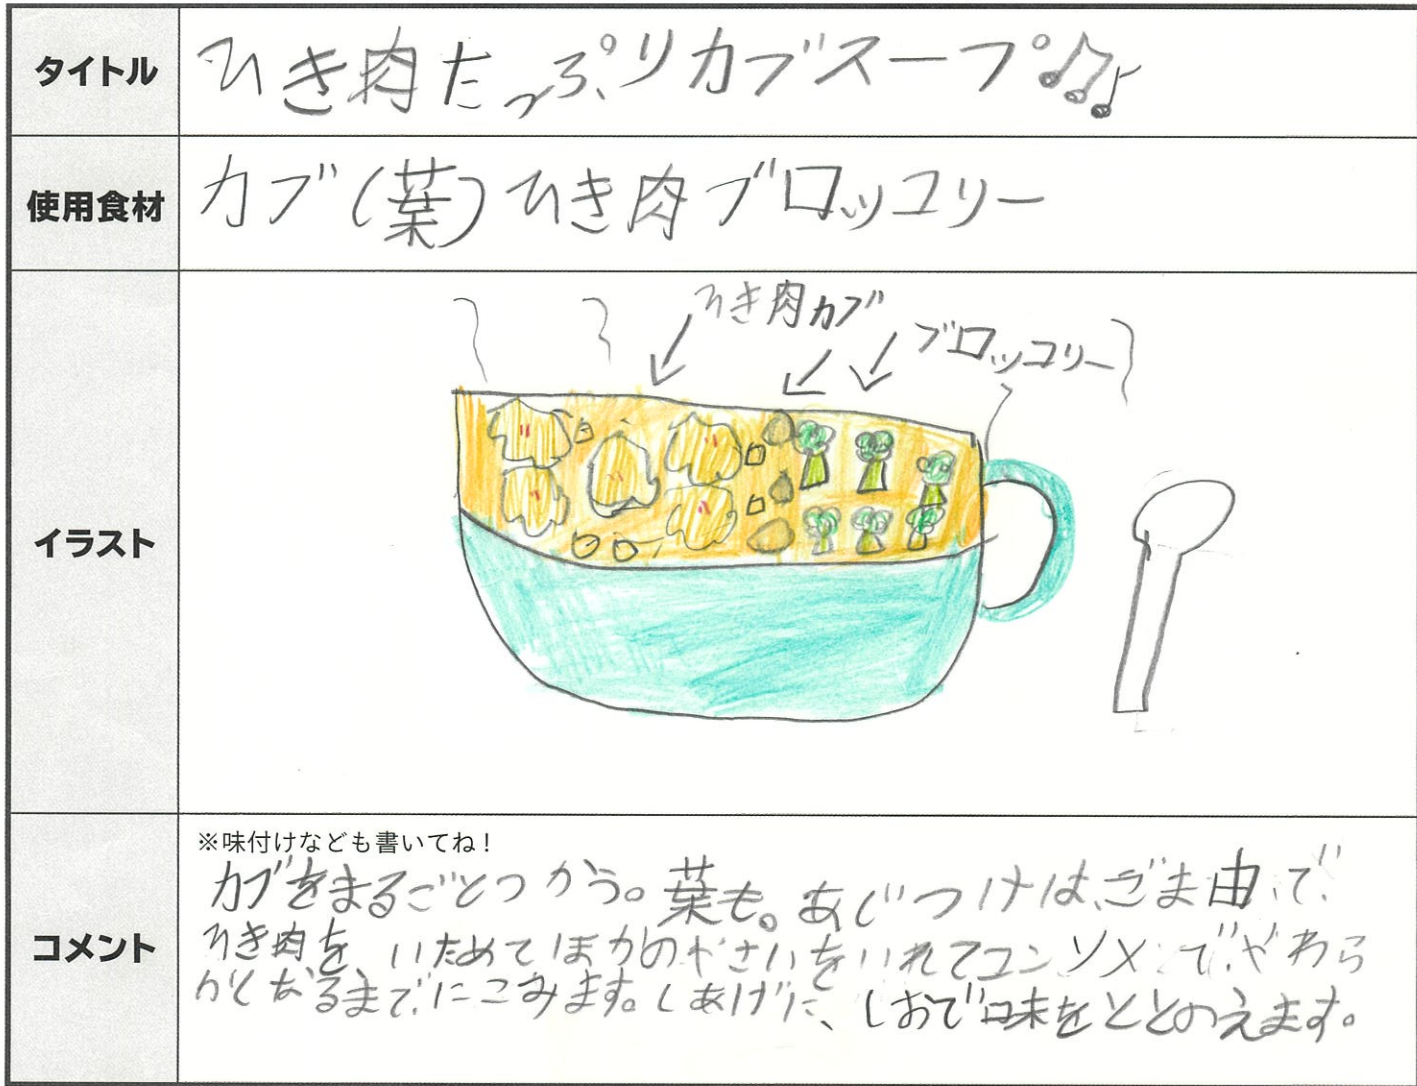 タイトル
ひき肉たっぷりカブスープ♪♫
使用食材
カブ(葉)ひき肉ブロッコリー
イラスト
ひき肉カブ
ブロッコリー
コメント
※味付けなども書いてね！
カブをまるごとつかう。葉も。あじつけは、ごま由で、
ひき肉を、いためてほかのやさいをいれてコンソメで、やわら
かくなるまで、にこみます。しあげに、しおで味をととのえます。